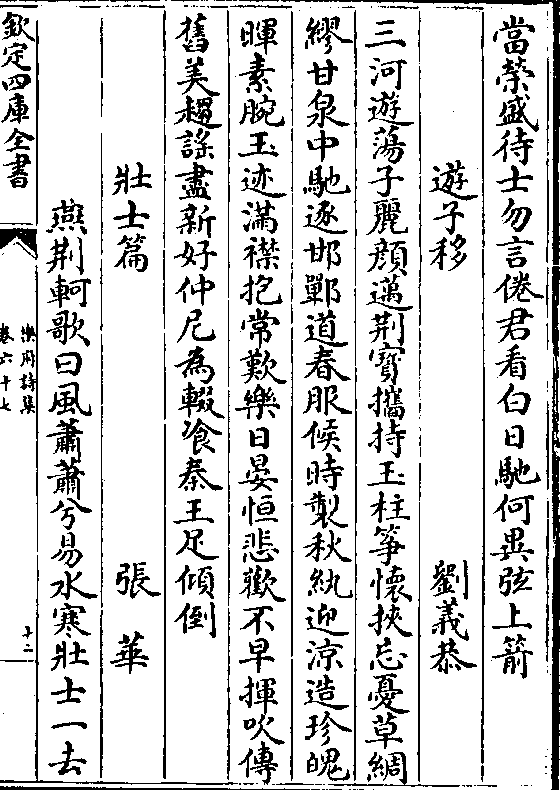 當榮盛待士勿言倦君看白日馳何異弦上箭
遊子移　劉義恭
三河遊蕩子麗顏邁荆寳攜持玉柱箏懷挾忘憂草綢
繆甘泉中馳逐邯鄲道春服候時製秋紈迎涼造珍魄
暉素腕玉迹滿襟抱常歎樂日晏恒悲歡不早揮吹傳
舊美趨謡盡新好仲尼為輟飡秦王足傾倒
壯士篇　張華
燕荆軻歌曰風蕭蕭兮易水寒壯士一去
欽定四庫全書
樂府詩集
卷六十七
十二